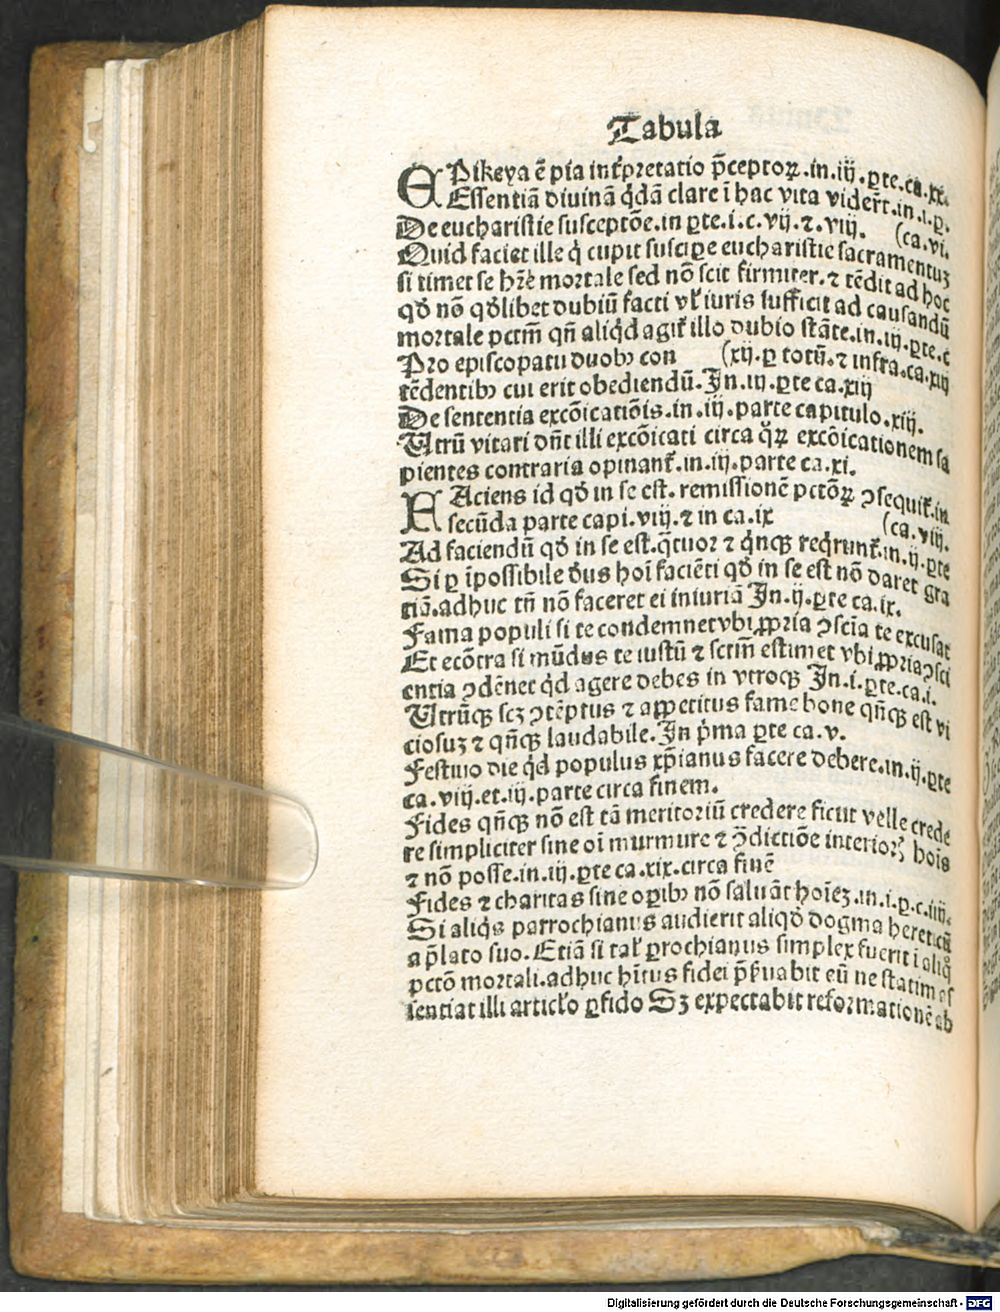 Tabula
EPikeya ē pia intˀpretatio p̄ceptoꝝ.in.iij.ꝑte.ca.xx.
Essentiā diuinā q̇dā clare ī hac vita viderūt.in.i.p.
De eucharistie susceptōe.in ꝑte.i.c.vij.⁊.viij. (ca.vi.
Quid faciet ille q̇ cupit suscipe eucharistie sacramentuꝫ
si timet se hr̄e mortale sed nō scit firmiter.⁊ tēdit ad hoc
qḋ nō qḋlibet dubiū facti vl̓ iuris sufficit ad causandū
mortale pctm̄ qn̄ aliq̇d agit̓ illo dubio stāte.in.iij.ꝑte.c
Pro episcopatu duobꝰ con (xij.ꝑ totū.⁊ infra.ca.xiij
tēdentibꝰ cui erit obediendū.In.iij.ꝑte ca.xiij
De sententia excōicatiōis.in.iij.parte capitulo.xiij.
Utrū vitari dn̄t illi excōicati circa q̄ꝝ excōicationem sa
pientes contraria opinant̓.in.iij.parte ca.xi.
FAciens id qḋ in se est. remissionē pctōꝝ ꝯsequit̓.in
secūda parte capi.viij.⁊ in ca.ix (ca.viij.
Ad faciendū qḋ in se est.q̄tuor ⁊ q̇nqꝫ req̇runt̓.in.ij.ꝑte
Si ꝑ īpossibile de̓us hoī faciēti qḋ in se est nō daret gra
tiā.adhuc tn̄ nō faceret ei iniuriā In.ij.ꝑte ca.ix.
Fama populi si te condemnet vbi ꝓpria ꝯscīa te excusat
Et ecōtra si mūdus te iustū ⁊ sctm̄ estimet vbi ꝓpria ꝯsci
entia ꝯdēnet q̇d agere debes in vtroqꝫ In.i.ꝑte.ca.i.
Utrūqꝫ scꝫ ꝯtēptus ⁊ appetitus fame bone qn̄qꝫ est vi
ciosuꝫ ⁊ qn̄qꝫ laudabile.In p̓ma ꝑte ca.v.
Festiuo die q̇d populus xp̄ianus facere debere.in.ij.ꝑte
ca.viij.et.iij.parte circa finem.
Fides qn̄qꝫ nō est tā meritoriū credere sicut velle crede
re simpliciter sine oī murmure ⁊ ꝯ̄dictiōe interioꝝ hoīs
⁊ nō posse.in.iij.ꝑte ca.xix.circa finē
Fides ⁊ charitas sine oꝑibꝰ nō saluāt hoīeꝫ.in.i.p.c.iiij.
Si aliq̇s parrochianus audierit aliqḋ dogma hereticū
a p̄lato suo.Etiā si tal̓ ꝑrochianus simplex fuerit i aliq̊
pctō mortali.adhuc hītus fidei p̄ẜuabit eū ne statim as
sentiat illi articl̓o ꝑfido Sꝫ expectabit reformationē ab
Digitalisierung gefördert durch die Deutsche Forschungsgemeinschaft - DFG